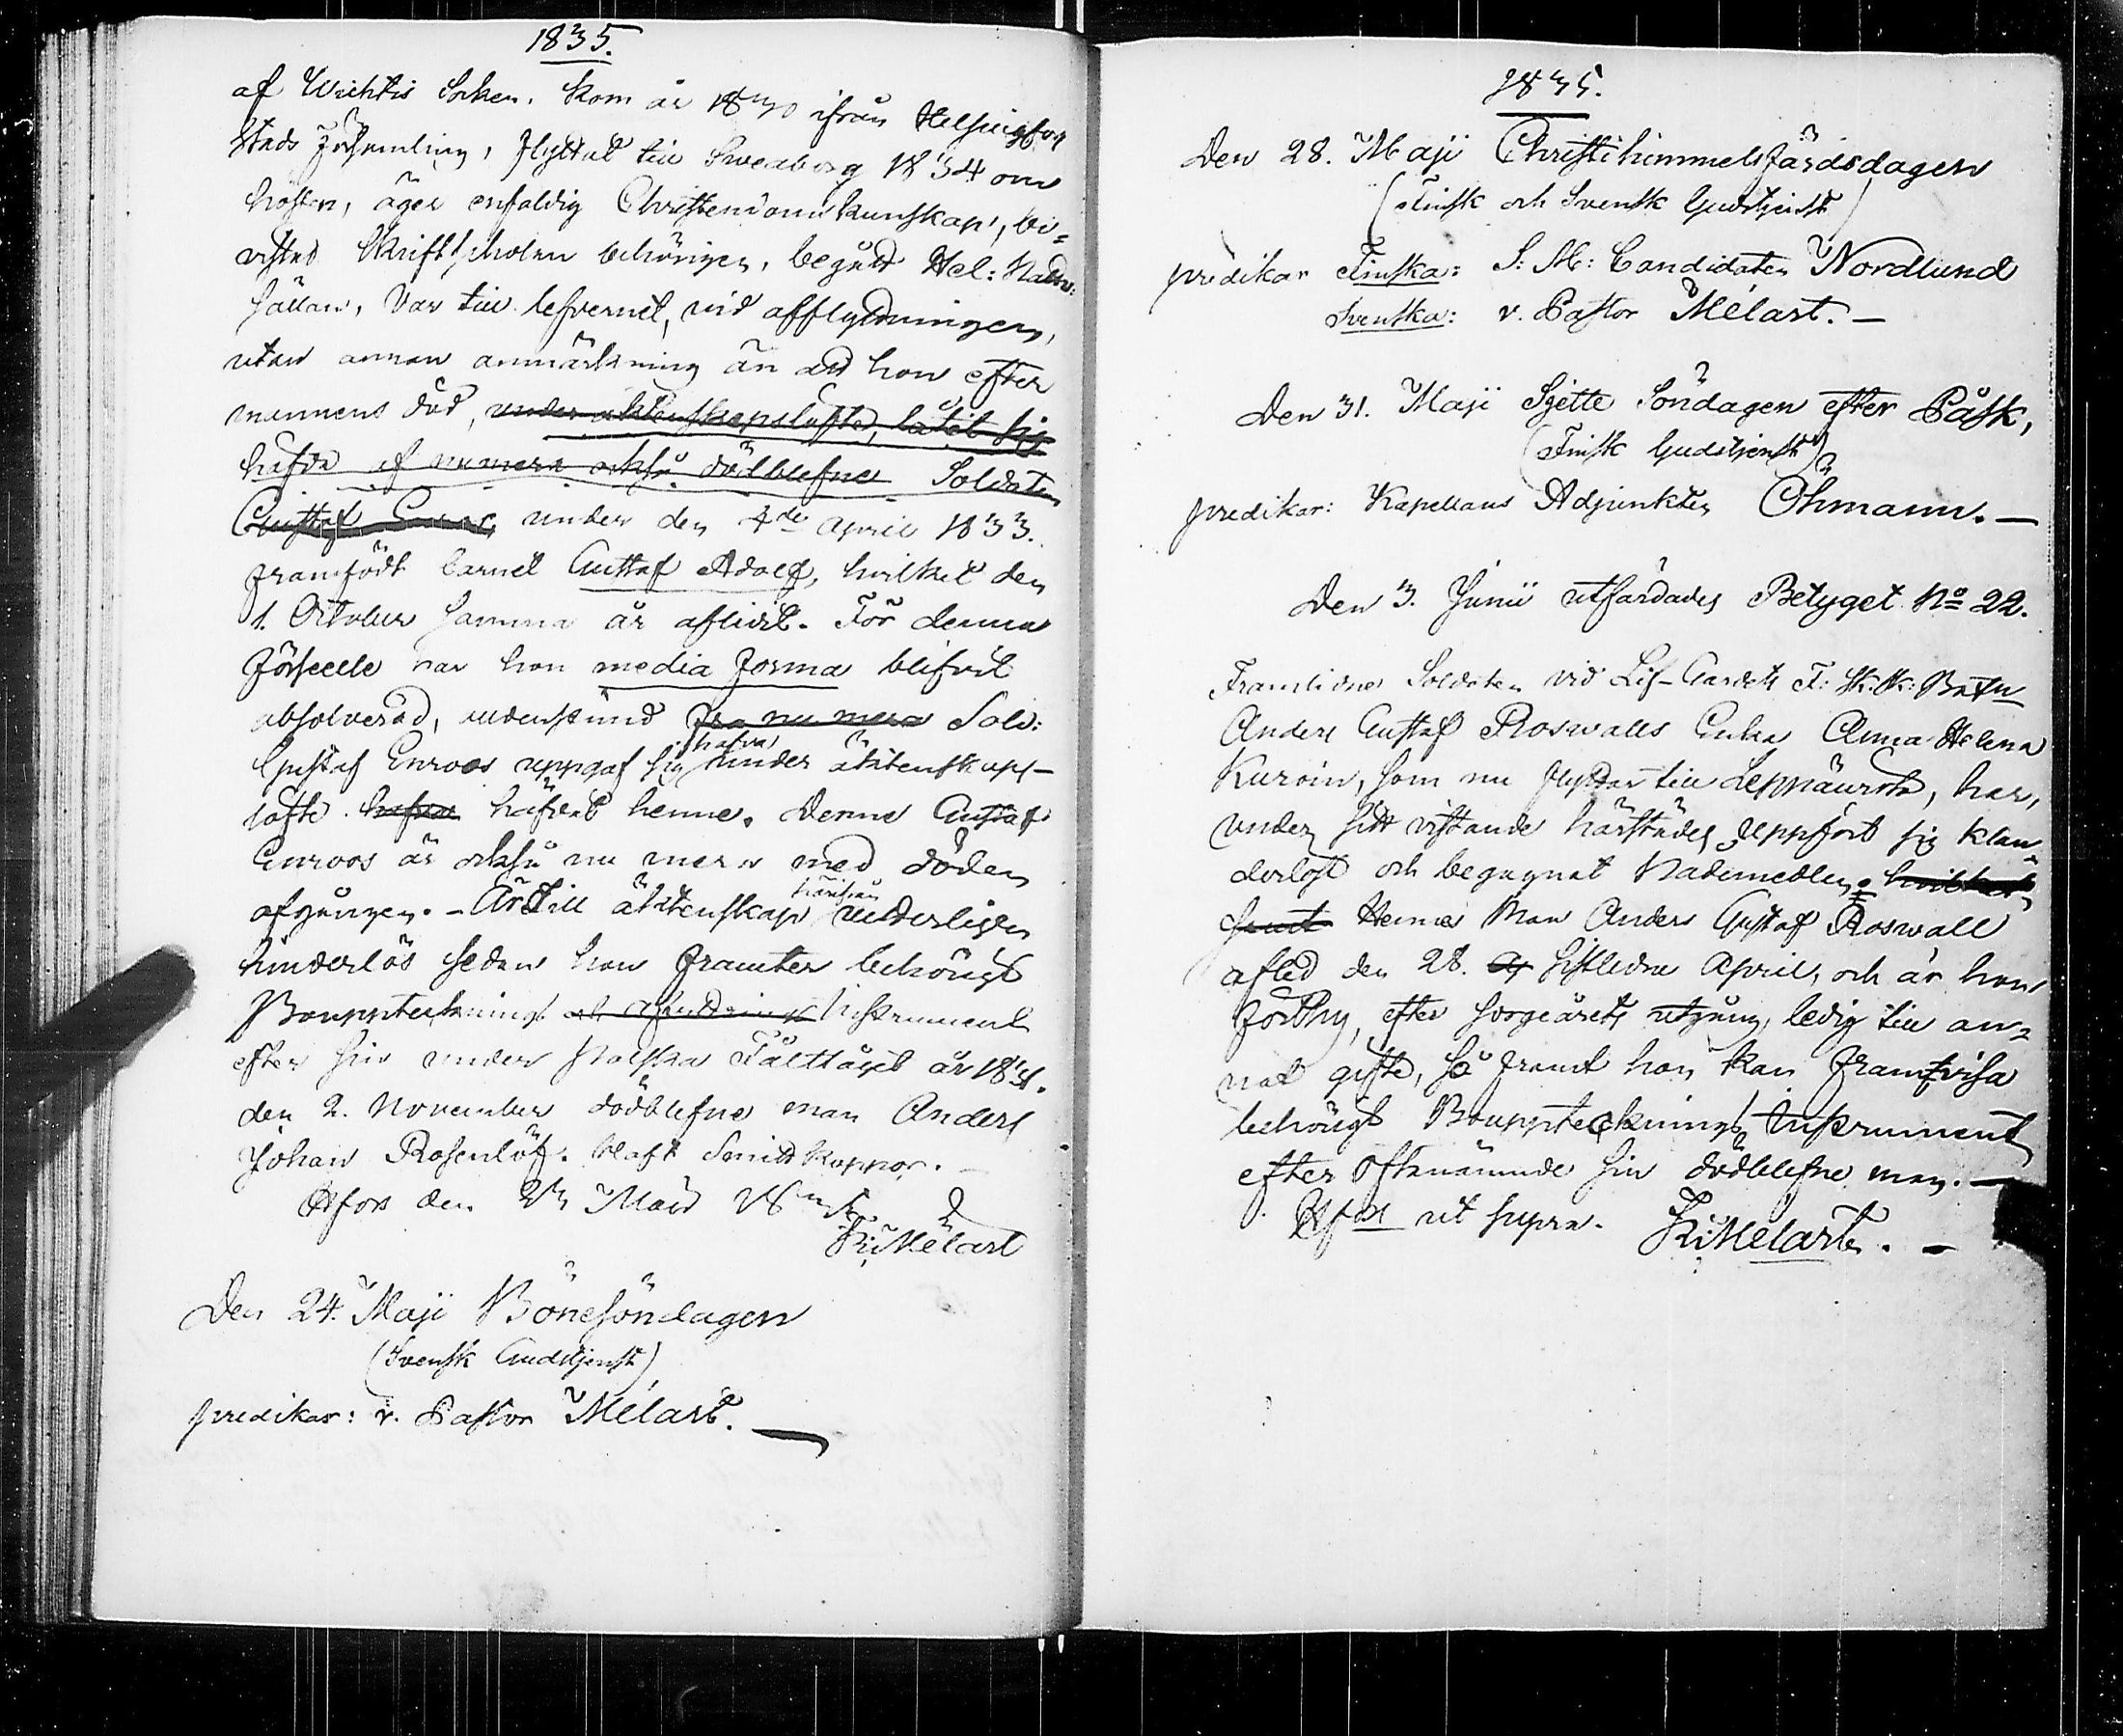 1835.
af Wichtis Socken. Kom år 1830 ifrån Helsingfors
Stads Församling, flyttat till Sveaborg 1834 om
hösten, äger enfaldig Christendoms kunskap, be-
vistad Skriftskolan behörigen, begått Hel: Nattv:
sällan. Var till lefvernet, vid afflyttningen,
utan annan anmärkning än att hon efter
mannens död, under äktenskapslöfte, låtit sig
häfda af numera också dödblefne Soldaten
Gustaf Enroos, under den 4de April 1833.
framfödt barnet Gustaf Adolf, hvilket den
1. October samma år aflidit. För denna
förseelse har hon media forma blifvit
absolverad, medan nu mera Sold:
Gustaf Enroos uppgaf sig hafva under äktenskaps-
löfte hafva häfdat henne. Denne Gustaf
Enroos är också nu mera med döden
afgången. - Är till äktenskap härifrån vederligen
hinderlös sedan hon framter behörigt
Bouppteknings och afvittrings Instrument
efter sin under Polska Fälttåget år 1831.
den 2. November dödblefne man Anders
Johan Rosenlöf. Haft Smittkoppor.
Hfors den Maii
Melart
Den 24. Maji Bönesöndagen
(Svensk Gudstjenst)
predikar: v. Pastor Melart. —
1835.
Den 28. Maji Christihimmelsfärdsdagen
(Finsk och Svensk Gudstjenst)
predikar Finska: S: M: Candidaten Nordlund
Svenska: v. Pastor Melart. —
Den 31. Maji Sjette Söndagen efter Påsk,
(Finsk Gudstjenst)
predikar: Kapellans Adjunkten Öhmann. —
Den 3. Junii utfärdades Betyget No 22.
Framlidne Soldaten vid Lif-Gardets F: Sk: Batn
Anders Gustaf Roswalls Enka Anna Helena
Kuroin, som nu flyttar till Leppäwirta, har,
under sitt vistande härstädes, uppfört sig klan-
derlöst och begagnat Nademedlen. hvilket
samt Hennes Man Anders Gustaf Roswall
afled den 28. Ap sistledne April, och är hon
fördthy, efter sorgeårets utgång, ledig till an-
nat gifte, så framt hon kan framtvisa
behörigt Bouppteckning Instrument
efter oftanämnde sin dödblefne man. —
Hfors ut supra. Melart. —